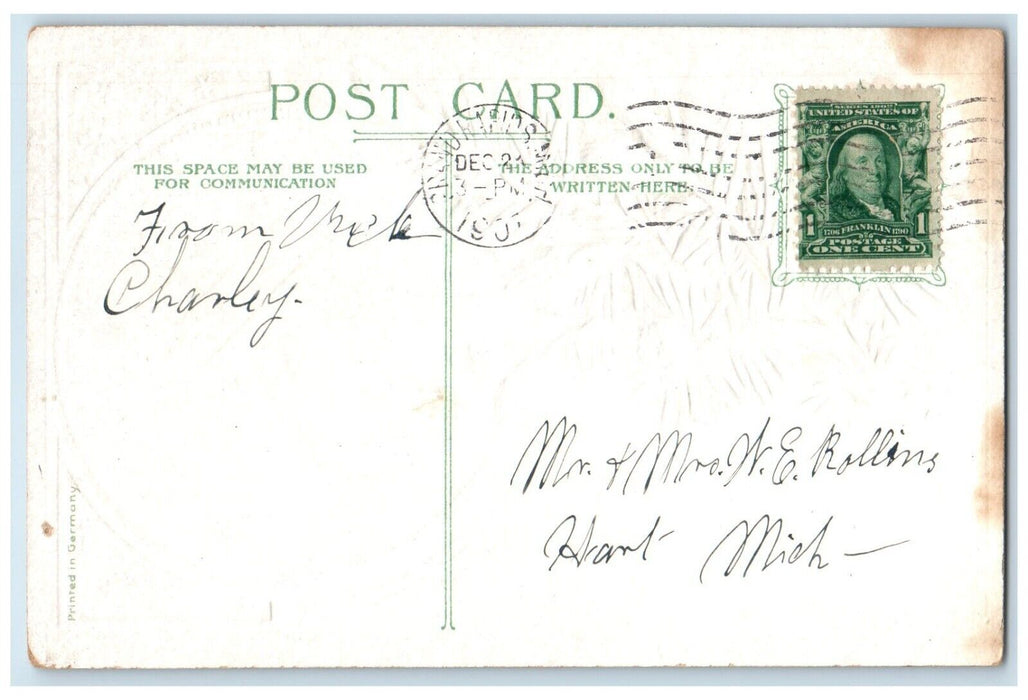 POST CARD.
THIS SPACE MAY BE USED
FOR COMMUNICATION
THE ADDRESS ONLY TO BE
WRITTEN HERE.
DEC 24
3-PM
SERIES 1902
UNITED STATES OF
AMERICA
1 1
1706 FRANKLIN 1790
POSTAGE
ONE CENT
From
Charley.
Mr. & Mrs. W. E. Rollins
Hart Mich
Printed in Germany.